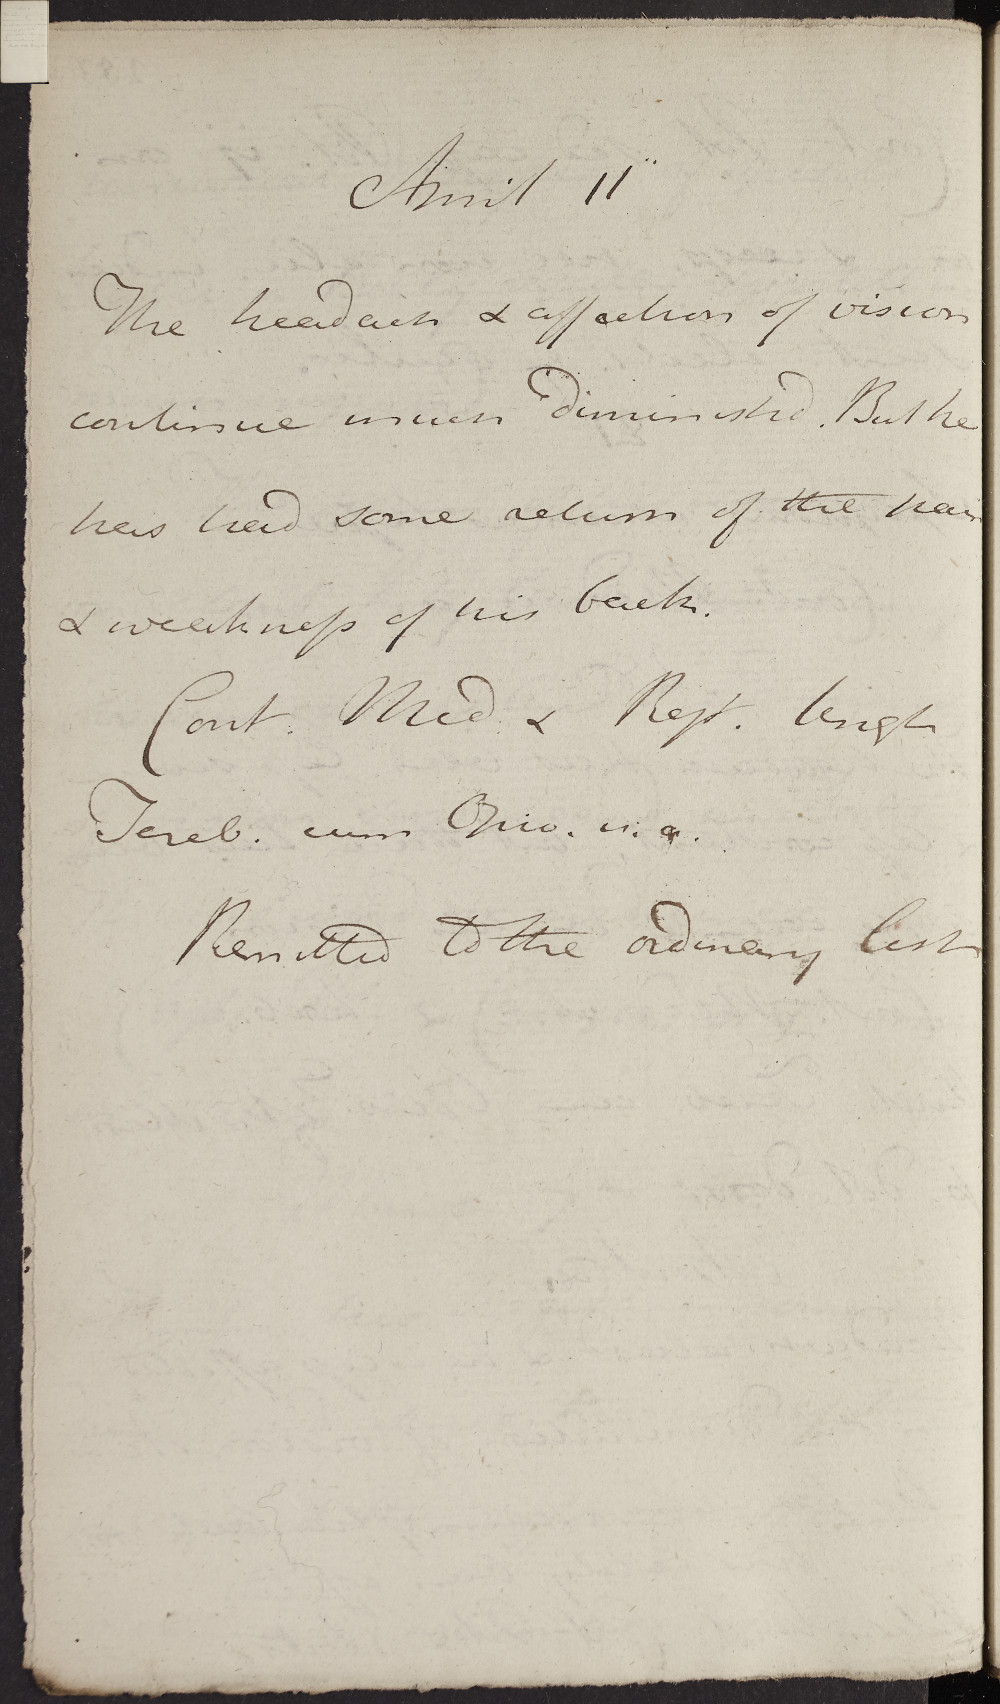 April 11"
The headach & affection of vision
continue much diminishd. But he
has had some return of the pain
& weakness of his back.
Cont. Med. & Rept.
Tereb. cum Opio. u.a.
Remitted to the ordinary list